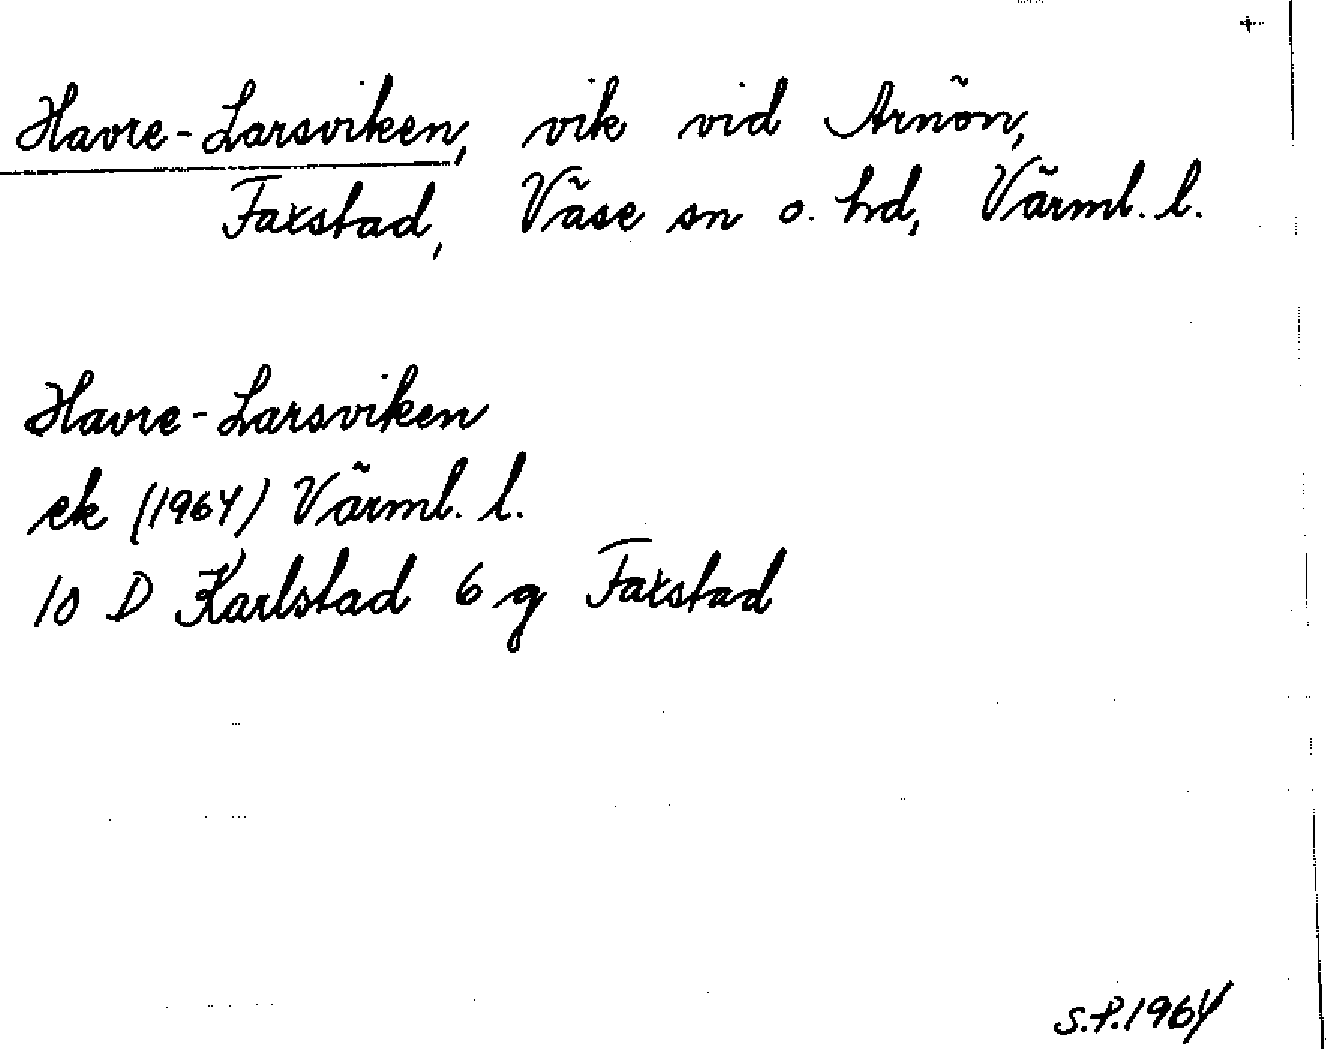 Havre-Larsviken, vik vid Arnön,
Faxstad, Väse sn o. hd, Värml. l.
Havre-Larsviken
ek (1964) Värml. l.
10 D Karlstad 6 g Faxstad
S.P. 1964